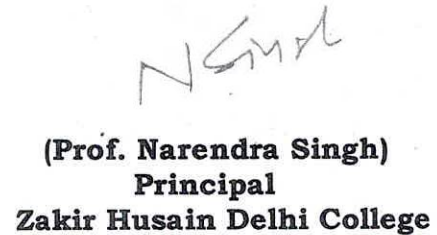 N Singh
(Prof. Narendra Singh)
Principal
Zakir Husain Delhi College